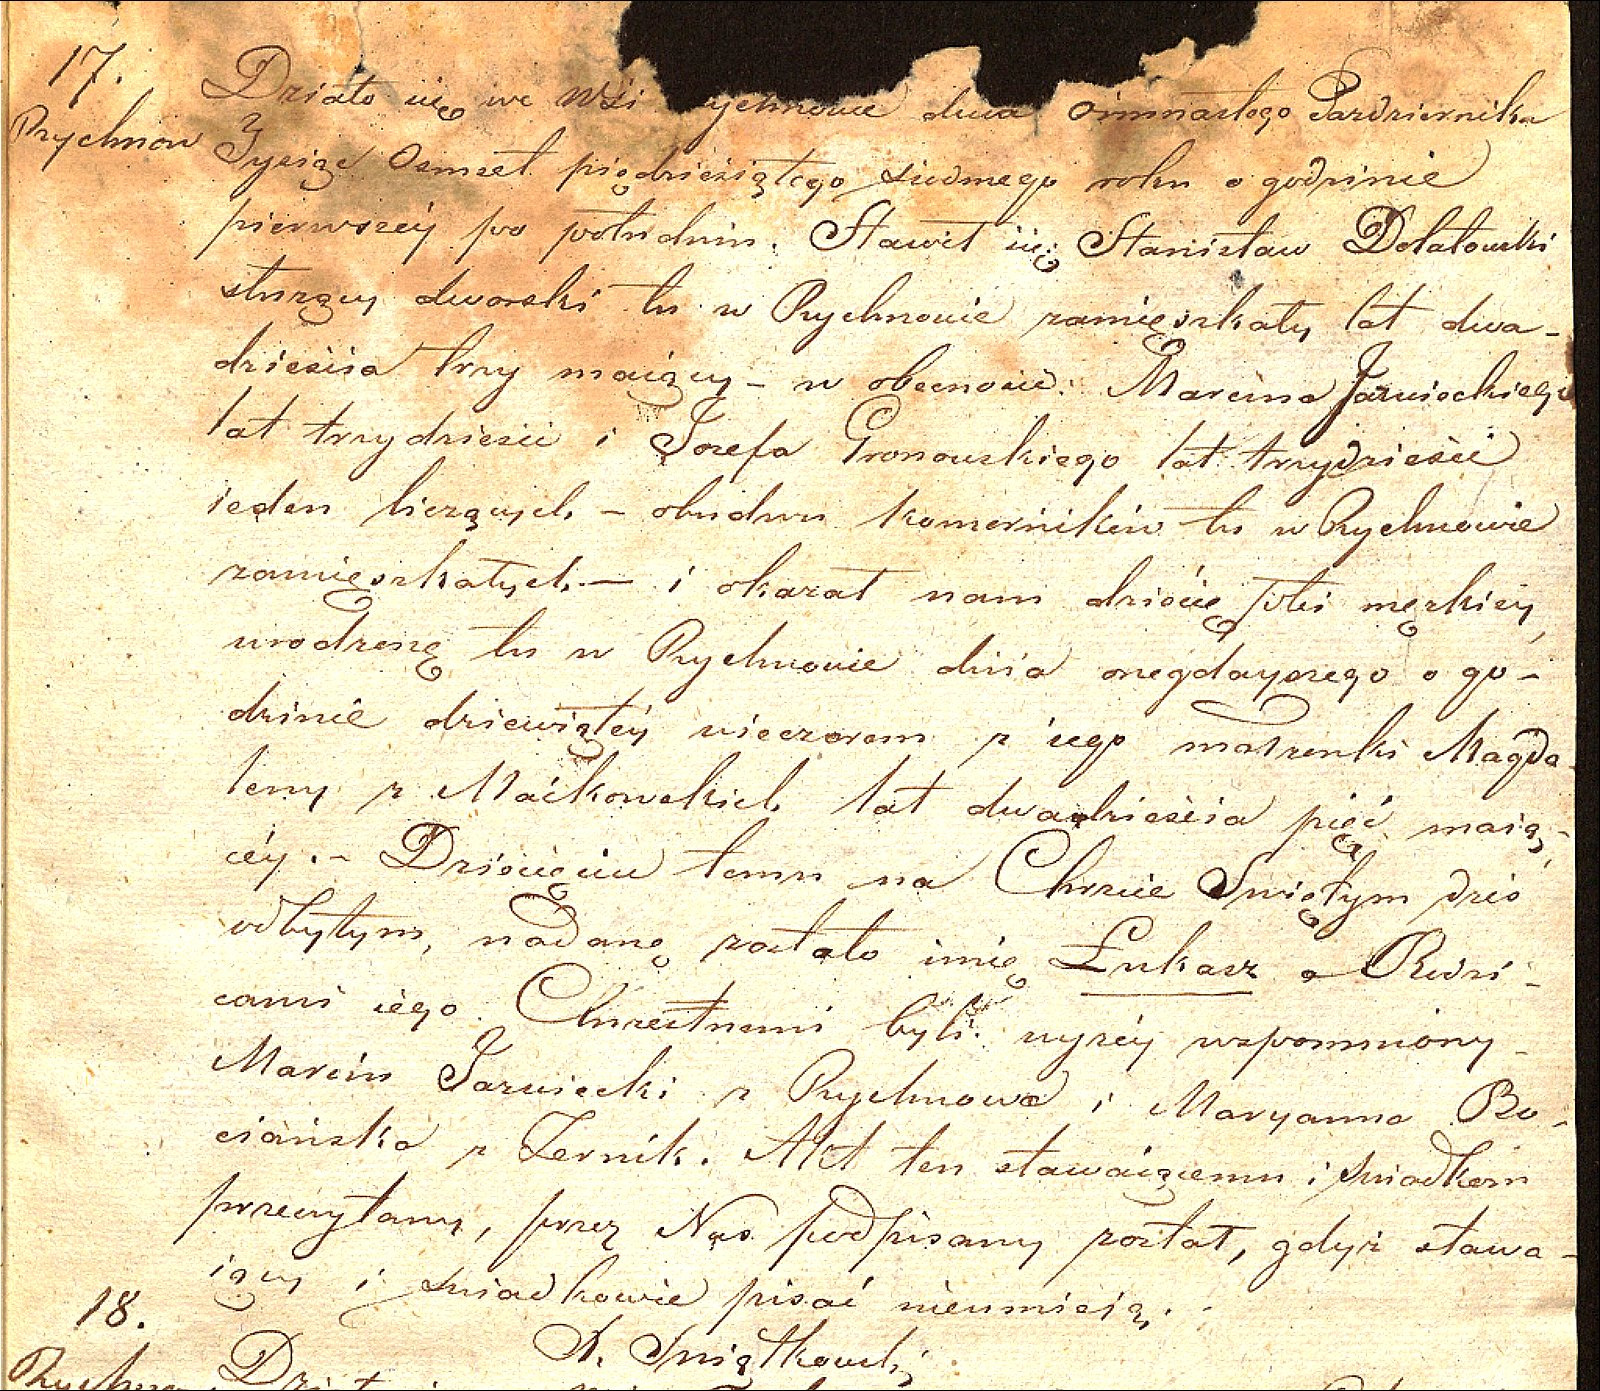 17.
Rychnow
Działo się we Wsi Rychnowie dnia Ośmnastego Października
Tysiąc Osmset pięćdziesiątego siudmego roku o godzinie
pierwszéy po południu. Stawił się Stanisław Dolatowski
służący dworski tu w Rychnowie zamięszkały lat dwa-
dzieścia trzy maiący – w obecności: Marcina Jarwieckiego
lat trzydzieści i Jozefa Gronowskiego lat trzydzieści
ieden liczących – obudwu komorników tu w Rychnowie
zamięszkałych – i okazał nam dziécię płci męzkiey,
urodzonę tu w Rychnowie dnia onegdayszego o go-
dzinie dziewiątéy wieczorem z iego małzonki Magda-
leny z Maćkowskich lat dwadzieścia pięć maią-
céy. – Dziecięciu temu na Chrzcie Swiętym dziś
odbytym, nadanę zostało imię Łukasz a Rodzi-
cami iego Chrzestnemi byli: wyzéy wspomniony
Marcin Jarwiecki z Rychnowa i Maryanna Bo-
ciańska z Zernik. Akt ten stawaiącemu i swiadkom
przeczytany, przez Nas podpisany został, gdyż stawa-
iący i swiadkowie pisać nieumieią.
A. Swiątkowski
18.